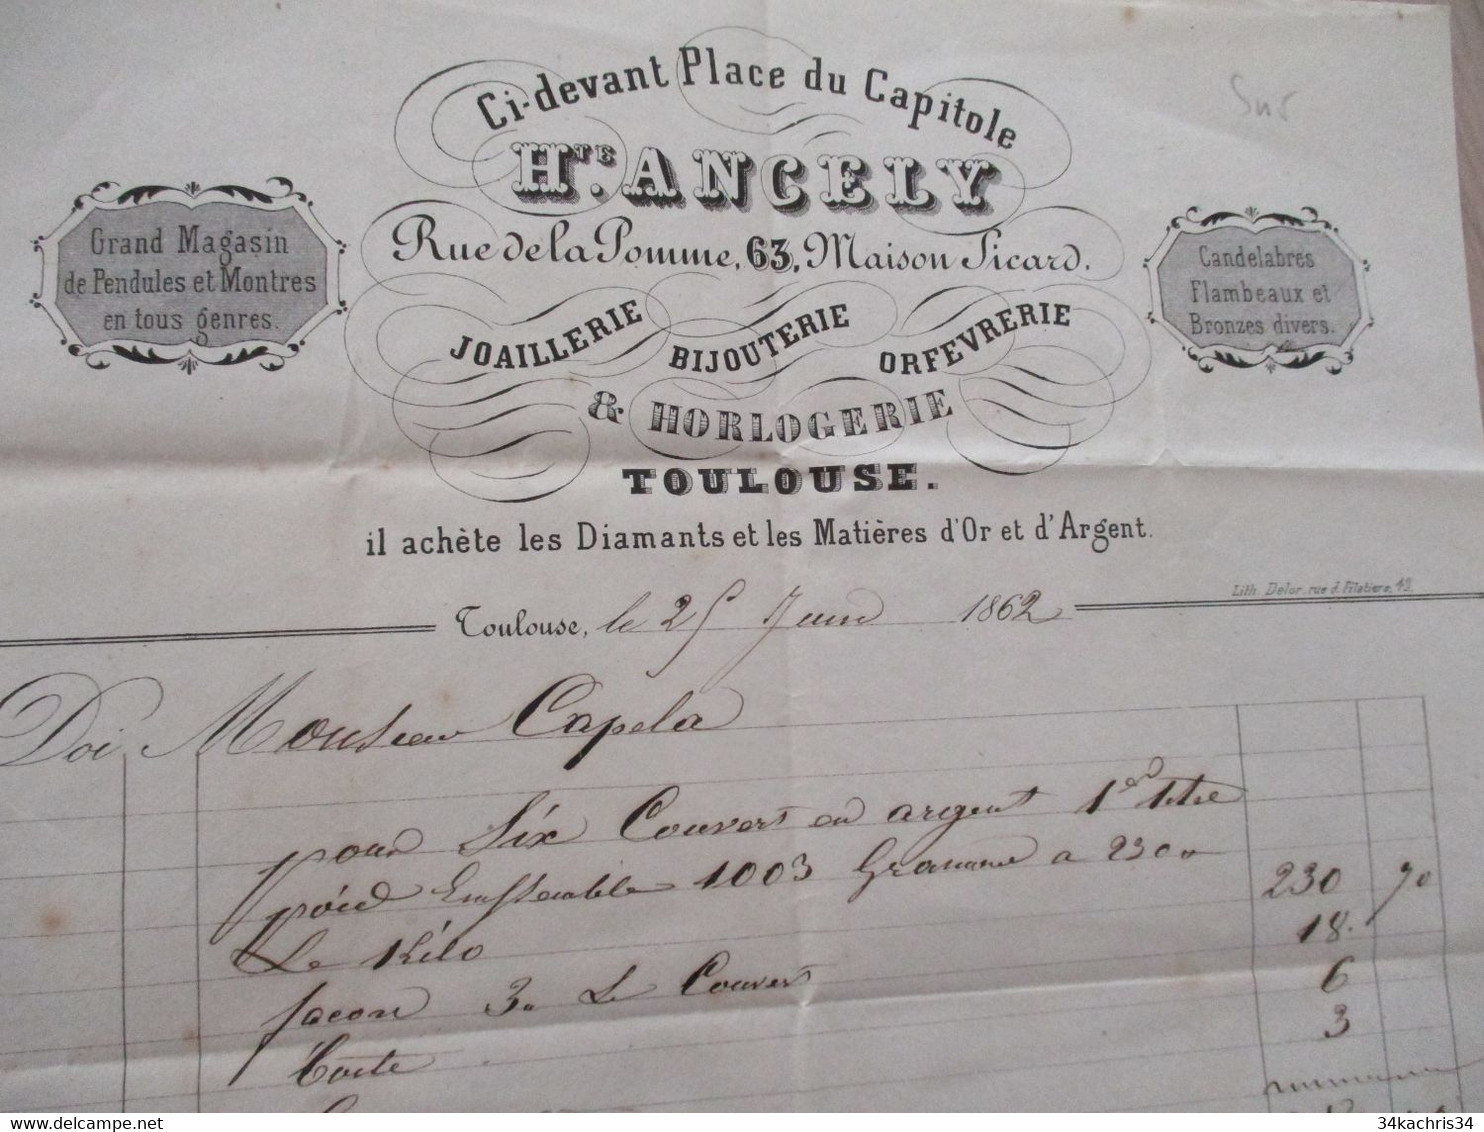 Sur
Ci-devant Place du Capitole
Hte. ANCELY
Rue de la Pomme, 63, Maison Sicard.
Grand Magasin
de Pendules et Montres
en tous genres.
Candelabres
Flambeaux et
Bronzes divers.
JOAILLERIE BIJOUTERIE ORFEVRERIE
& HORLOGERIE
TOULOUSE.
il achète les Diamants et les Matières d'Or et d'Argent.
Lith. Delor, rue d. Filatiers, 49.
Toulouse, le 25 Juin 1862
Doi Monsieur Capela
pour Six Couvert en argent 1er titre
poid Emssemble 1003 Gramme a 230"
Le Kilo 230 70
façon 3" Le Couvert 18.
boite 6
3
34kachris34
delcampe.net
34kachris34